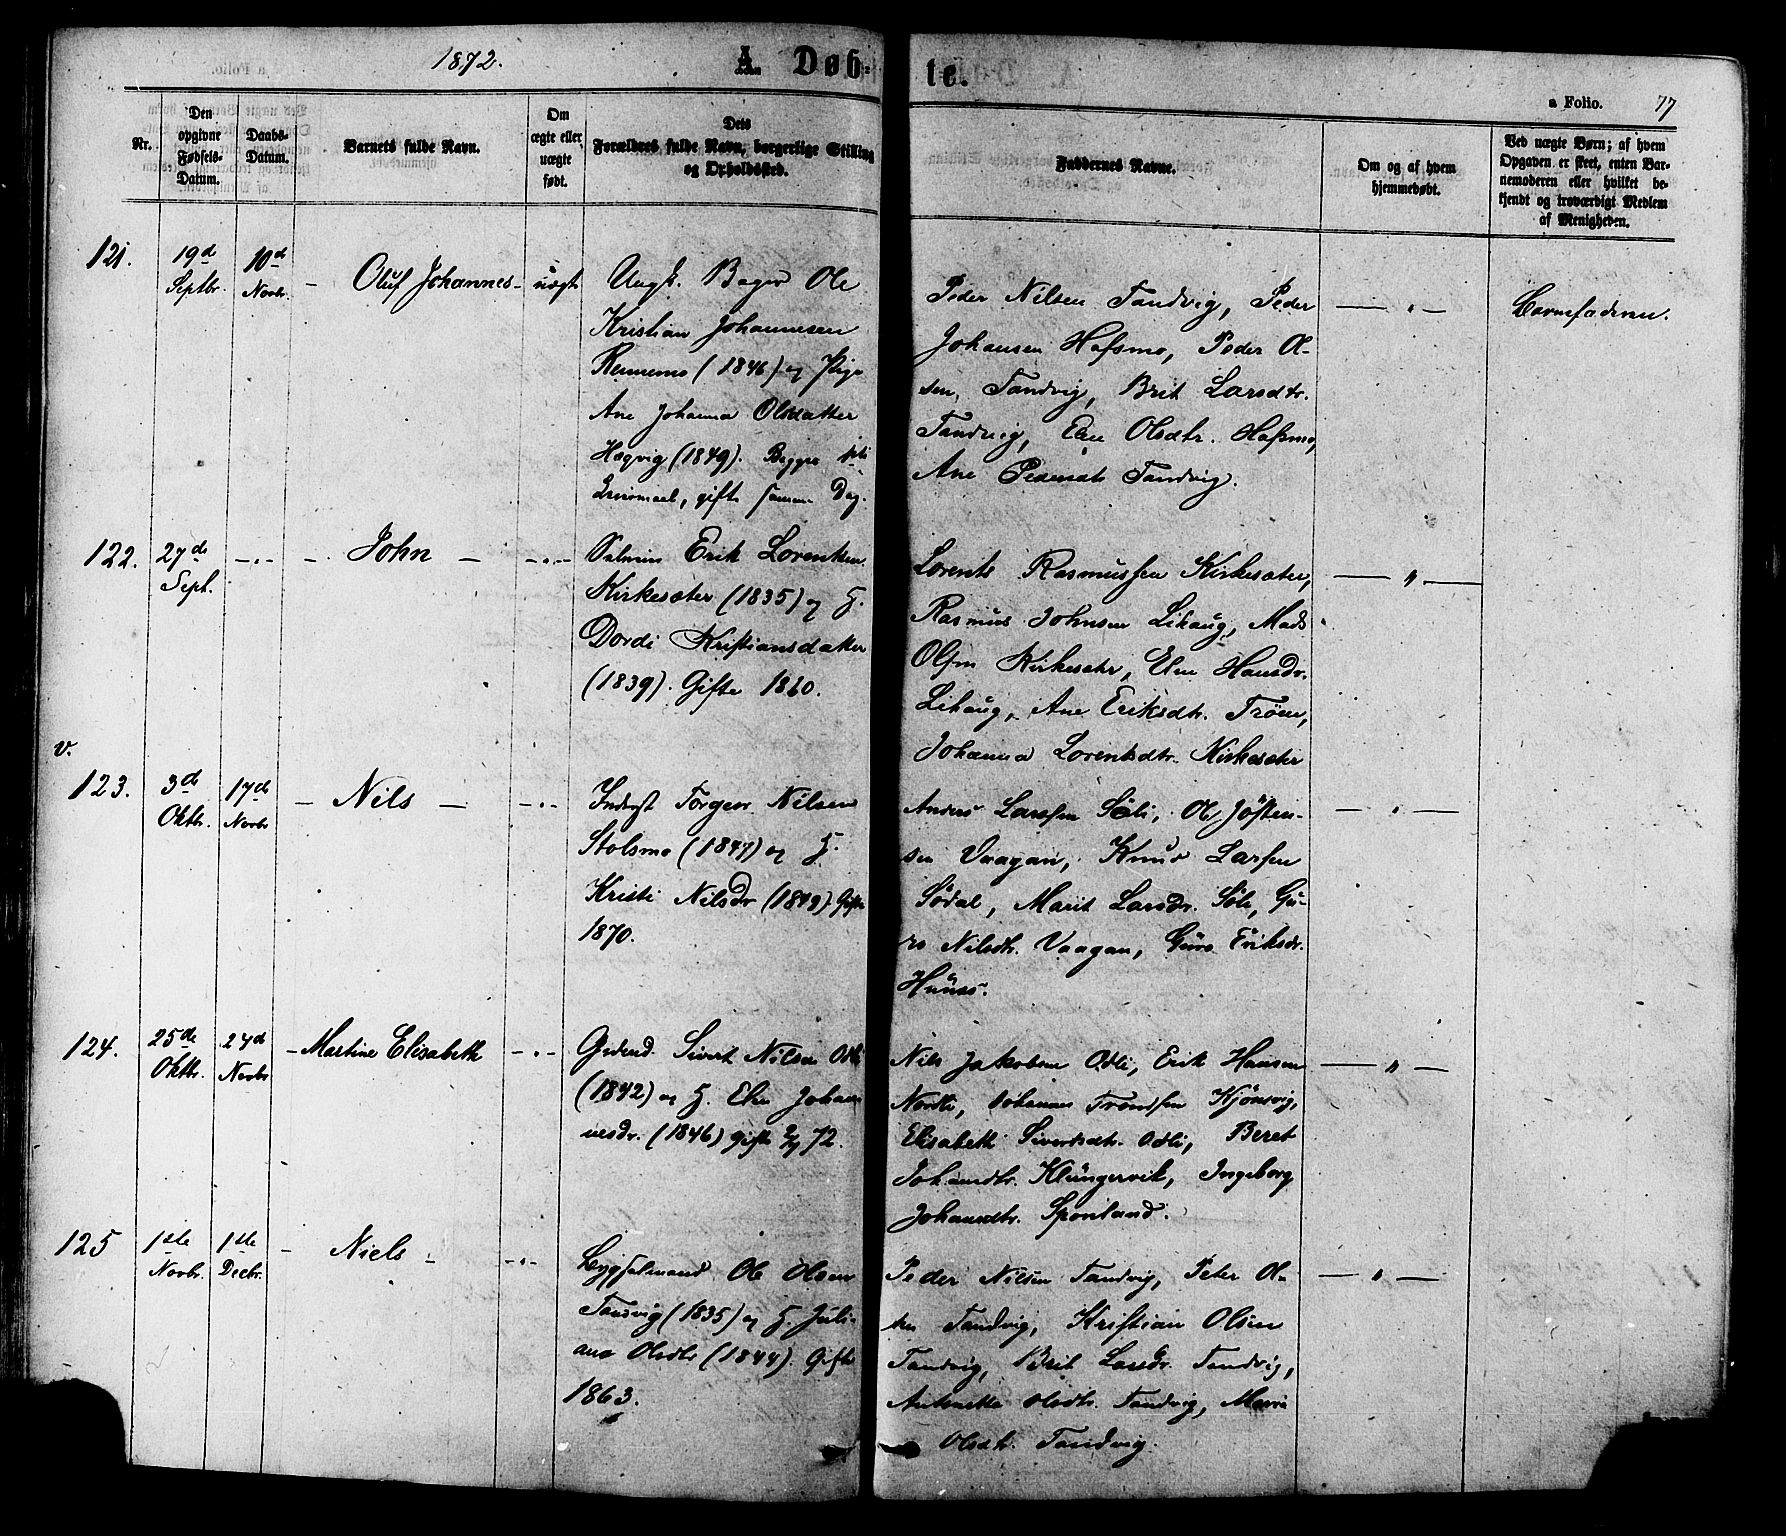 1872.
A. Døb-
te.
a Folio. 77
Nr.
Den
opgivne
Fødsels-
Datum.
Daabs-
Datum.
Barnets fulde Navn.
Om
ægte eller
uægte
født.
Dets
Forældres fulde Navn, borgerlige Stilling
og Opholdssted.
Faddernes Navne.
Om og af hvem
hjemmedøbt.
Ved uægte Børn; af hvem
Opgaven er skeet, enten Bar-
nemoderen eller hvilket be-
kjendt og troværdigt Medlem
af Menigheden.
121.
19d
Septbr.
10d
Novbr.
- Oluf Johannes -
uægt
Ungk. Bager Ole
Kristian Johannesen
Rennemo (1846) og Pige
Ane Johanna Olsdatter
Hægvig (1849). Begges
gift samme Dag.
Peder Nilsen Tandvig, Peder
Johansen Hafsmo, Peder Ol-
sen, Tandvig, Brit Larsdtr.
Tandvig, Elen Olsdtr. Hafsmo,
Ane Pedersdt Tandvig.
— " —
Barnefaderen.
122.
27de
Sept.
-"-
- John -
-"-
Selveier Erik Lorentsen
Kirkesæter (1835) og H.
Dordi Kristiansdatter
(1839). Gifte 1860.
Lorents Rasmussen Kirkesæter,
Rasmus Johnsen Lihaug, Mads
Olsen Kirkesæter, Elen Hansdr.
Lihaug, Ane Eriksdtr. Trøen,
Johanna Lorentsdtr. Kirkesæter
— " —
v.
123.
3de
Oktbr.
17de
Novbr
- Nils -
-"-
Inderst Torger Nilsen
Stolsmo (1847) og H.
Kristi Nilsdr (1849) Gifte
1870.
Anders Larssen Söli, Ole Jösten-
sen Vaagan, Knud Larsen
Södal, Marit Larsdr. Söli, Gu-
ro Nilsdtr. Vaagan, Guro Eriksdr.
— " —
124.
25de
Oktbr.
24d
Novbr
- Martine Elisabeth
-"-
Sivert Nilsen Odli
(1842) og H. Elen Johan-
nesdr. (1846) gifte 72.
Nils Jakobsen Odli, Erik Hansen
Nordli, Johannes Trondsen Kjönsvig,
Elisabeth Sivertsdtr. Odli, Beret
Johansdtr. Klungervik, Ingeborg
Johansdtr. Sponland.
— " —
125
1ste
Novbr.
1ste
Decbr.
- Niels -
-"-
Bygselmand Ole Olsen
Tandvig (1835) og H. Juli-
ana Olsdtr (1844). Gifte
1863.
Peder Nilsen Tandvig, Peter Ol-
sen Tandvig, Kristian Olsen
Tandvig, Brit Larsdr. Tandvig,
Antonette Olsdtr. Tandvig, Marie
Olsdtr. Tandvig.
— " —